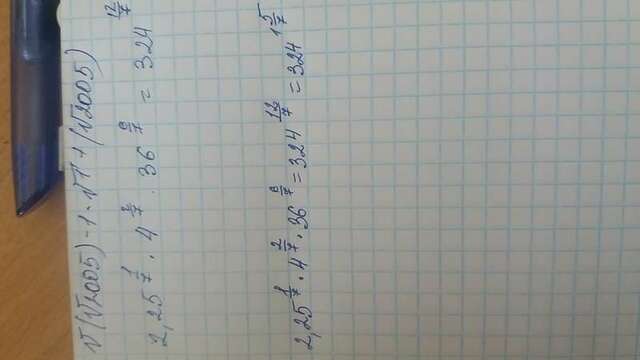 √(√2005) - 1 · √1 + (√2005)
2,25^{1/7} · 4^{2/7} · 36^{6/7} = 324^{12/7}
2,25^{1/7} · 4^{2/7} · 36^{6/7} = 324^{12/7} = 324^{1 5/7}